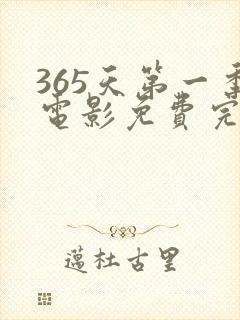 365天第一季
電影免費完
邁杜古里